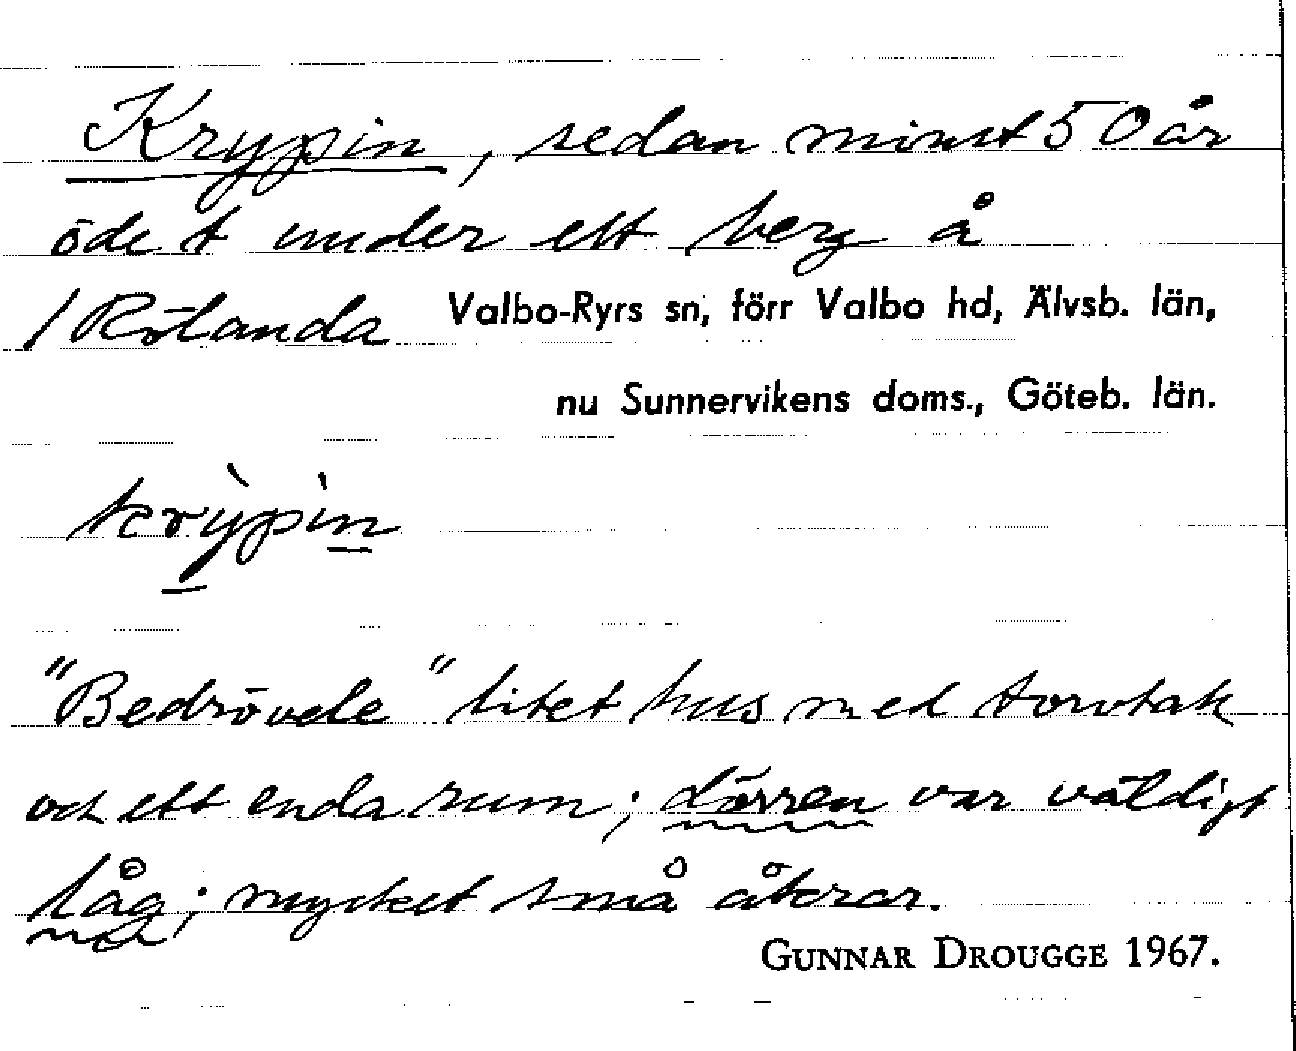 Krypin, sedan minst 50 år
öde t under ett berg å
/ Rölanda Valbo-Ryrs sn, förr Valbo hd, Älvsb. län,
nu Sunnervikens doms., Göteb. län.
krỳpìn
"Bedrövele" litet hus med torvtak
och ett enda rum; dörren var väldigt
låg; mycket små åkrar.
GUNNAR DROUGGE 1967.